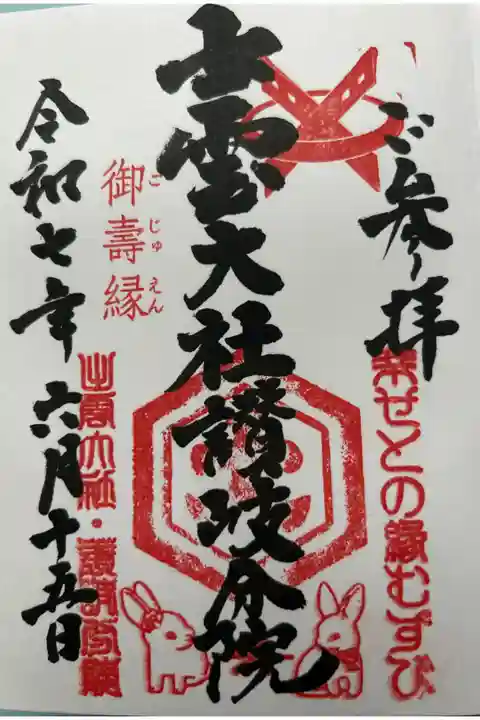 ご参拝
幸せとの縁むすび
出雲大社讃岐分院
御壽縁
ごじゅえん
令和七年六月十五日